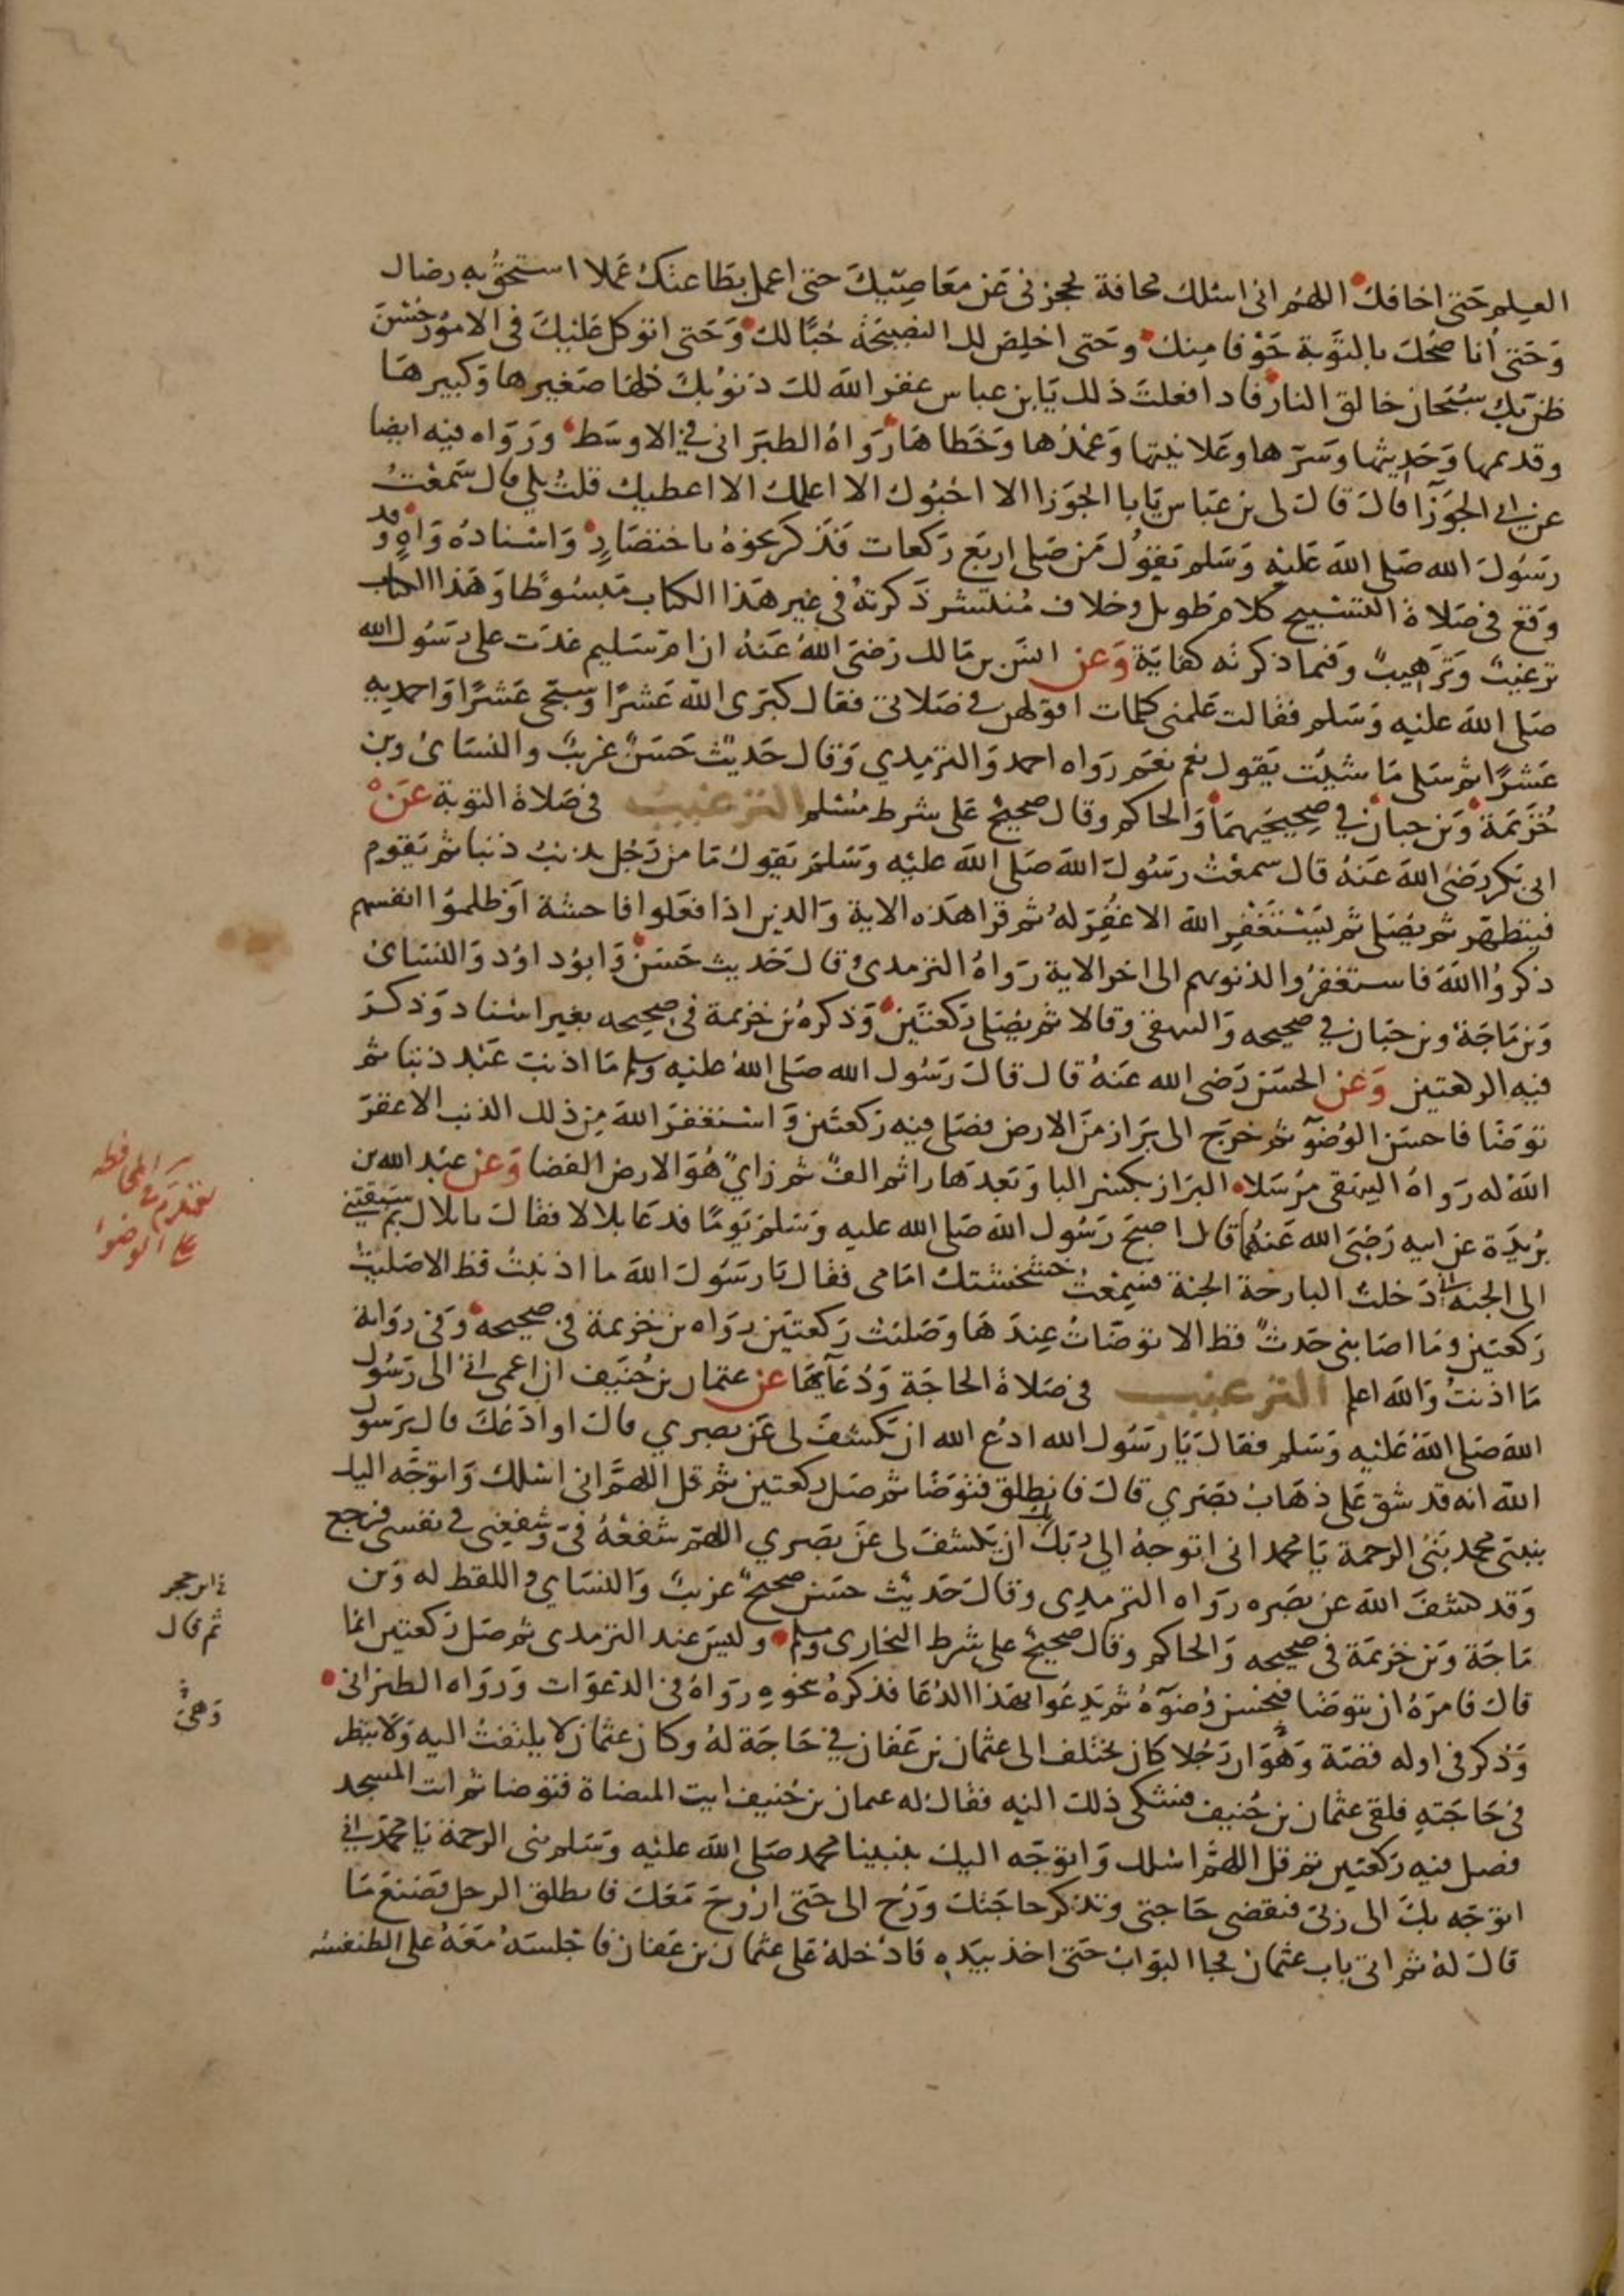 العلم حتى اخافك اللهم انى اسئلك مخافة تحجزنى عن معاصيك حتى اعمل بطاعتك عملا استحق به رضاك
وحتى أناصحك بالتوبة خوفا منك وحتى اخلص لك النصيحة حبا لك وحتى اتوكل عليك فى الامور حسن
ظن بك سبحان خالق النار فاذا فعلت ذلك يا بن عباس غفر الله لك ذنوبك كلها صغيرها وكبيرها
وقديمها وحديثها وسرها وعلانيتها وعمدها وخطاها رواه الطبرانى في الاوسط ورواه فيه ايضا
عن ابى الجوزا قال قال لى بن عباس يا با الجوزا الا احبوك الا اعلمك الا اعطيك قلت بلى قال سمعت
رسول الله صلى الله عليه وسلم يقول من صلى اربع ركعات فذكر نحوه باختصار واسناده واه وقد
وقع فى صلاة التسبيح كلام طويل وخلاف منتشر ذكرته فى غير هذا الكتاب مبسوطا وهذا الكتاب
ترغيب وترهيب وفيما ذكرته كفاية وعن انس بن مالك رضى الله عنه ان ام سليم غدت على رسول الله
صلى الله عليه وسلم فقالت علمنى كلمات اقولهن فى صلاتى فقال كبرى الله عشرا وسبحى عشرا واحمديه
عشرا ثم سلى ما شيت يقول نعم نعم رواه احمد والترمذي وقال حديث حسن غريب والنسائ وبن
خزيمة وبن حبان في صحيحيهما والحاكم وقال صحيح على شرط مسلم الترغيب فى صلاة التوبة عن
ابى بكر رضى الله عنه قال سمعت رسول الله صلى الله عليه وسلم يقول ما من رجل يذنب ذنبا ثم يقوم
فيتطهر ثم يصلى ثم يستغفر الله الا غفر له ثم قرا هذه الاية والذين اذا فعلوا فاحشة او ظلموا انفسهم
ذكروا الله فاستغفروا لذنوبهم الى اخر الاية رواه الترمذى وقال حديث حسن وابو داود والنسائ
وبن ماجة وبن حبان في صحيحه والبيهقى وقالا ثم يصلى ركعتين وذكره بن خزيمة فى صحيحه بغير اسناد وذكر
فيه الركعتين وعن الحسن رضى الله عنه قال قال رسول الله صلى الله عليه وسلم ما اذنب عبد ذنبا ثم
توضا فاحسن الوضوء ثم خرج الى براز من الارض فصلى فيه ركعتين واستغفر الله من ذلك الذنب الا غفر
الله له رواه البيهقى مرسلا البراز بكسر البا وبعدها را ثم الف ثم زاي هو الارض الفضا وعن عبد الله بن
بريدة عن ابيه رضى الله عنهما قال اصبح رسول الله صلى الله عليه وسلم يوما فدعا بلالا فقال يا بلال بم سبقتني
الى الجنة انى دخلت البارحة الجنة فسمعت خشخشتك امامى فقال يا رسول الله ما اذنبت قط الا صليت
ركعتين وما اصابنى حدث قط الا توضات عندها وصليت ركعتين رواه بن خزيمة فى صحيحه وفى رواية
ما اذنبت والله اعلم الترغيب فى صلاة الحاجة ودعائها عن عثمان بن حنيف ان اعمى اتى الى رسول
الله صلى الله عليه وسلم فقال يا رسول الله ادع الله ان يكشف لى عن بصري قال او ادعك قال يرسول
الله انه قد شق على ذهاب بصري قال فانطلق فتوضا ثم صل ركعتين ثم قل اللهم انى اسئلك واتوجه اليك
بنبيى محمد نبى الرحمة يا محمد انى اتوجه الى ربى بك ان يكشف لى عن بصري اللهم شفعه فى وشفعنى فى نفسى فرجع
وقد كشف الله عن بصره رواه الترمذى وقال حديث حسن صحيح غريب والنساي واللفظ له وبن
ماجة وبن خزيمة فى صحيحه والحاكم وقال صحيح على شرط البخارى ومسلم وليس عند الترمذى ثم صل ركعتين انما
قال فامره ان يتوضا فيحسن وضوءه ثم يدعوا بهذا الدعا فذكره بنحوه رواه فى الدعوات ورواه الطبرانى
وذكر فى اوله قصة وهو ان رجلا كان يختلف الى عثمان بن عفان في حاجة له وكان عثمان لا يلتفت اليه ولا ينظر
فى حاجته فلقى عثمان بن حنيف فشكى ذلك اليه فقال له عثمان بن حنيف ايت الميضاة فتوضا ثم ات المسجد
فصل فيه ركعتين ثم قل اللهم اسئلك واتوجه اليك بنبينا محمد صلى الله عليه وسلم نبى الرحمة يا محمد انى
اتوجه بك الى ربى فتقضى حاجتى وتذكر حاجتك ورح الى حتى اروح معك فانطلق الرجل فصنع ما
قال له ثم اتى باب عثمان فجا البواب حتى اخذ بيده فادخله على عثمان بن عفان فاجلسه معه على الطنفسة
المحافظة
على الوضوا
ثم قال
وهى